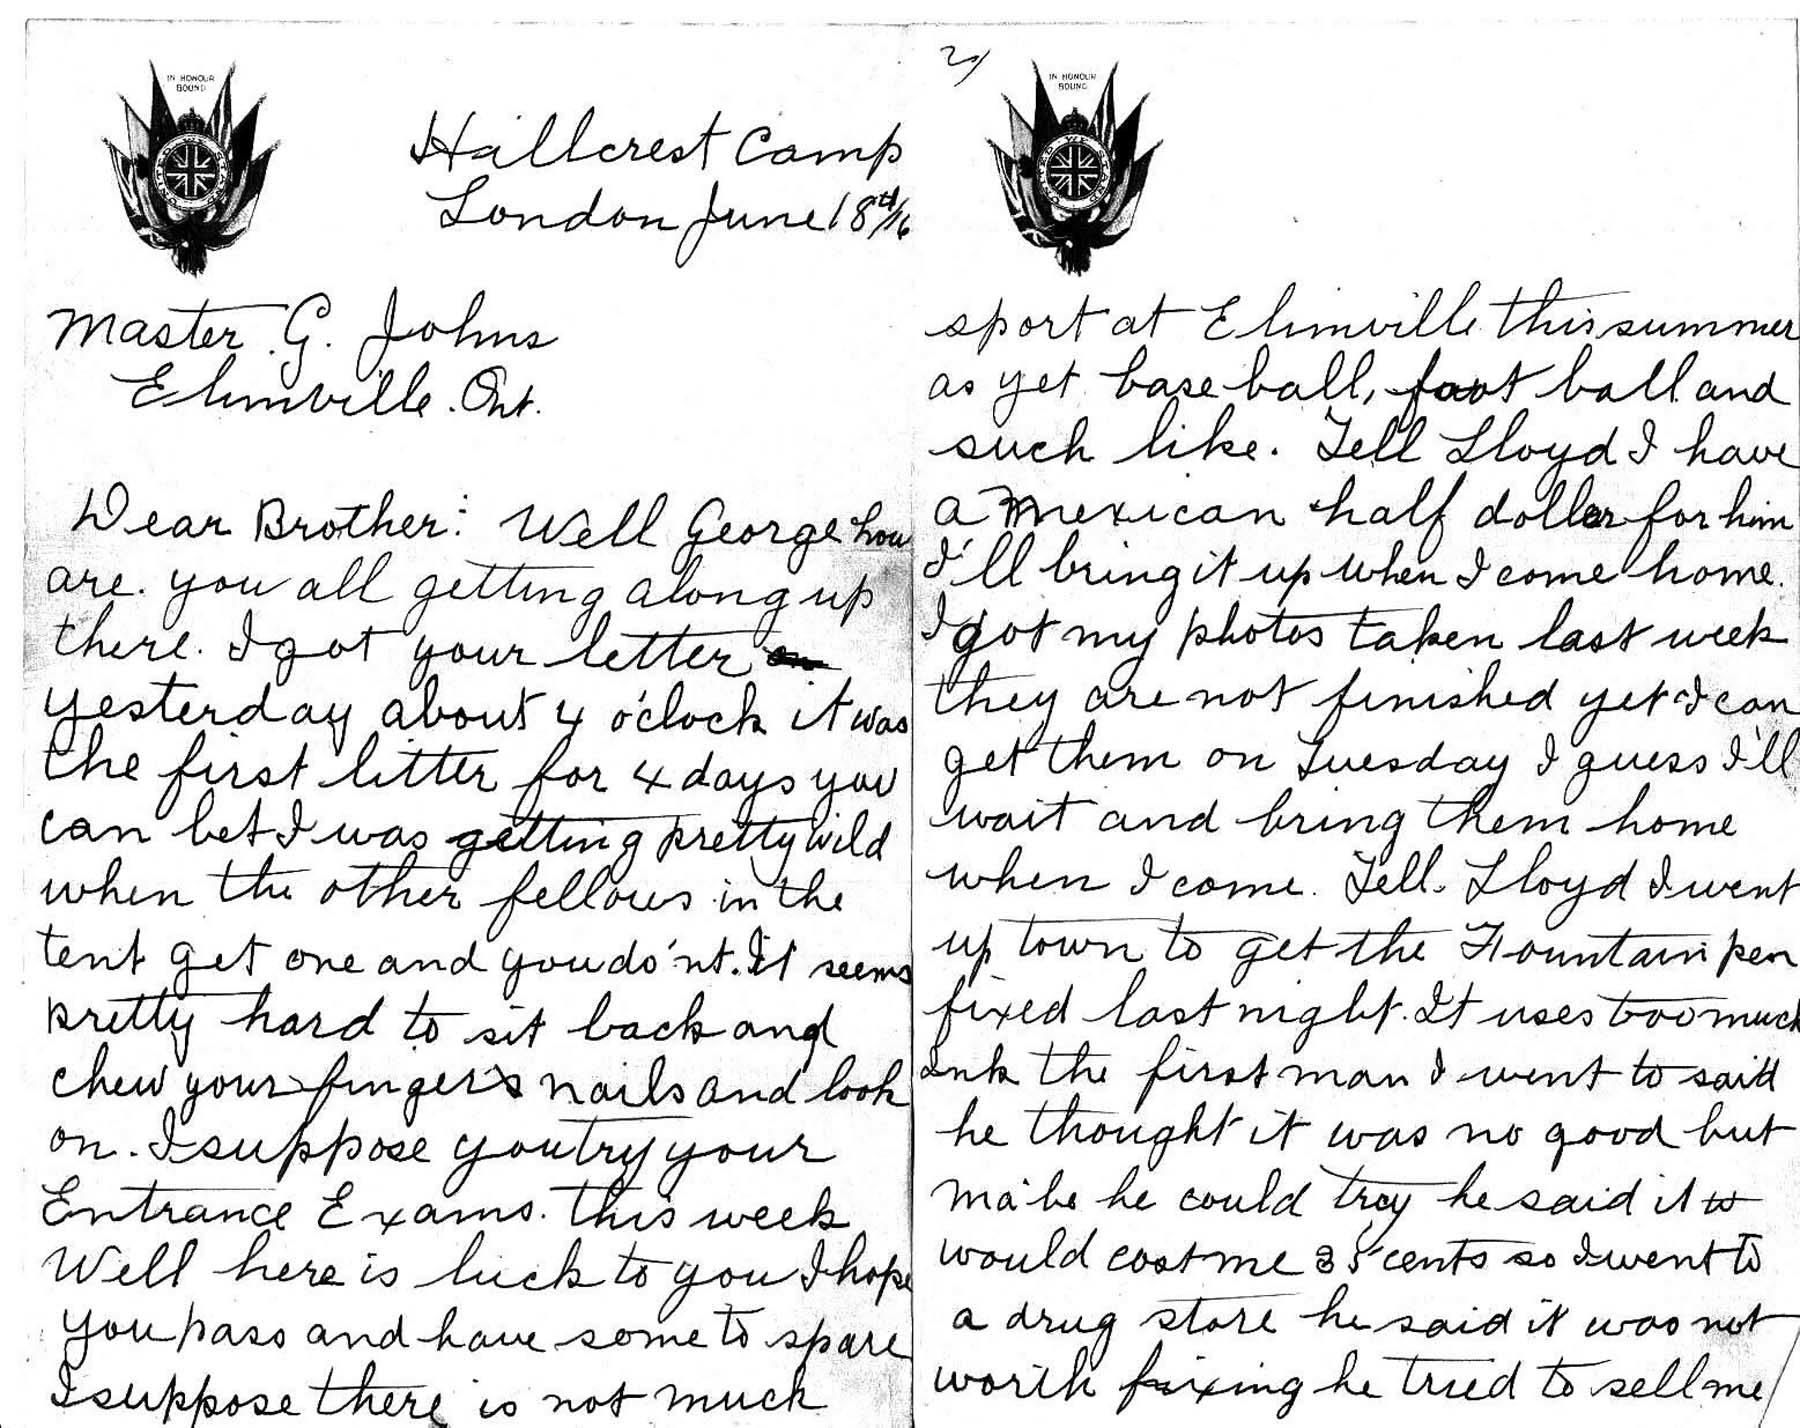 IN HONOUR
BOUND
UNITED WE STAND
Hillcrest Camp
London June 18th/16
Master. G. Johns
Elimville. Ont.
Dear Brother: Well George how
are. you all getting along up
there. I got your letter
yesterday about 4 o'clock it was
the first litter for 4 days you
can bet I was getting pretty wild
when the other fellows in the
tent get one and you do'nt. It seems
pretty hard to sit back and
chew your fingers nails and look
on. I suppose you try your
Entrance Exams. this week
Well here is luck to you I hope
you pass and have some to spare
I suppose there is not much
2/
IN HONOUR
BOUND
UNITED WE STAND
sport at Elimville this summer
as yet base ball, foot ball and
such like. Tell Lloyd I have
a Mexican half dollar for him
I'll bring it up when I come home.
I got my photos taken last week
they are not finished yet I can
get them on Tuesday I guess I'll
wait and bring them home
when I come. Tell. Lloyd I went
up town to get the Fountain pen
fixed last night. It uses too much
Ink the first man I went to said
he thought it was no good but
ma'be he could try he said it
would cost me 35 cents so I went to
a drug store he said it was not
worth fixing he tried to sell me